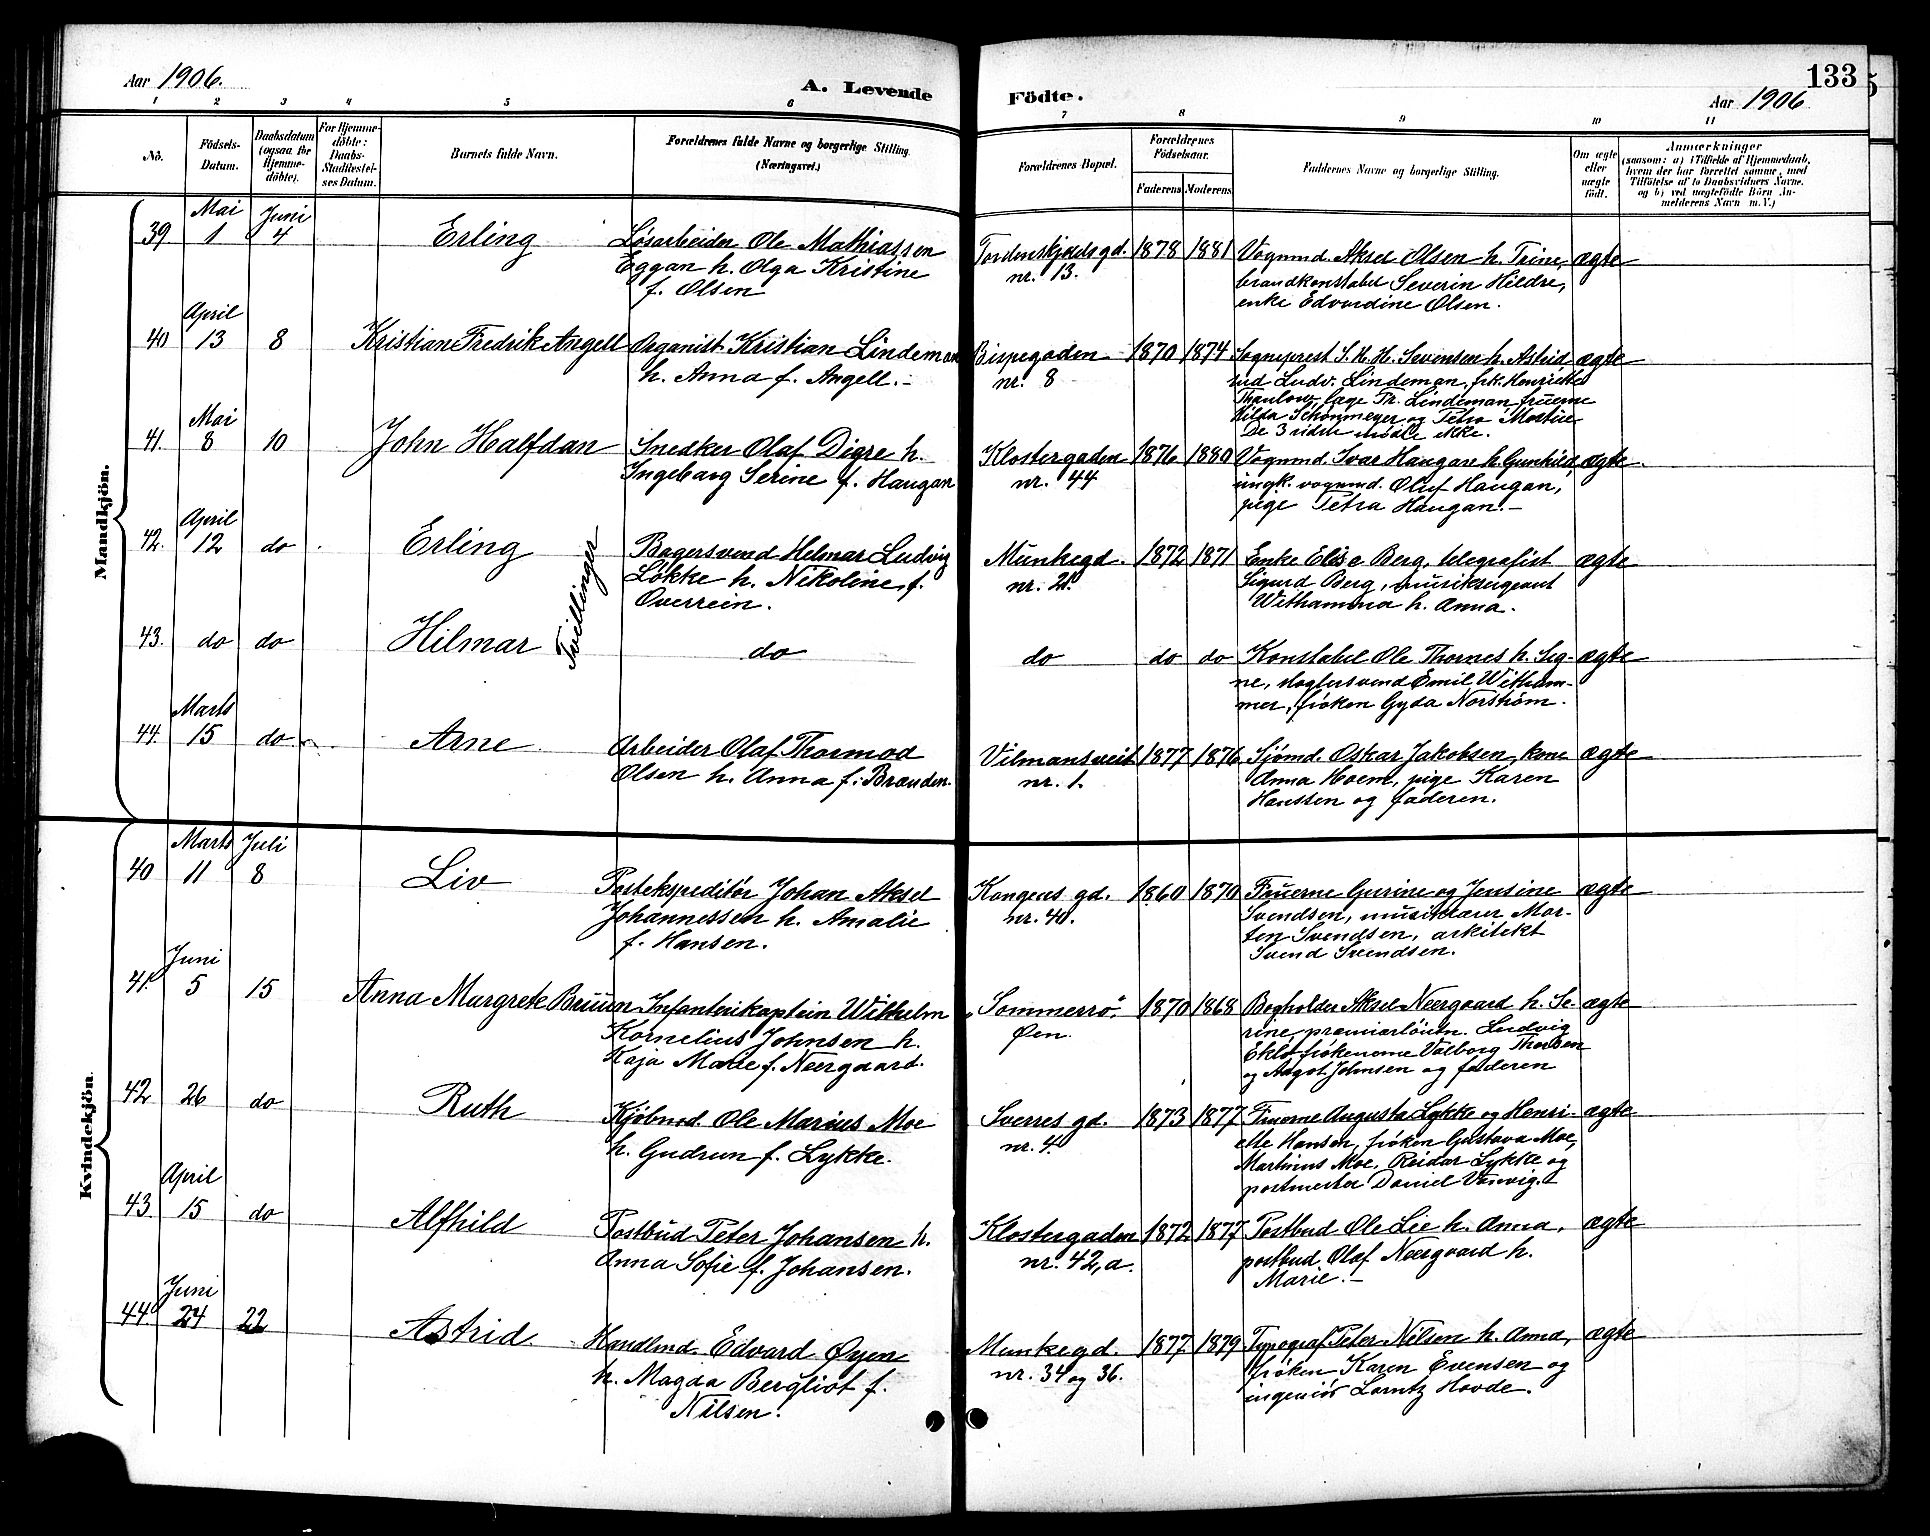 Aar 1906.
A. Levende
Födte.
133
Aar 1906
1 2 3 4 5 6 7 8 9 10 11
No.
Födsels-
Datum.
Daabsdatum
(ogsaa for
Hjemme-
döbte).
For Hjemme-
döbte:
Daabs-
Stadfæstel-
ses Datum.
Barnets fulde Navn.
Forældrenes fulde Navne og borgerlige Stilling.
(Næringsvei.)
Forældrenes Bopæl.
Forældrenes
Födselsaar.
Faderens Moderens
Faddernes Navne og borgerlige Stilling.
Om ægte
eller
uægte
födt.
Anmærkninger
(saasom: a) i Tilfælde af Hjemmedaab,
hvem der har forrettet samme, med
Tilföielse af to Daabsvidners Navne,
og b) ved uægtefödte Börn An-
melderens Navn m. V.)
Mandkjön.
39. Mai 1 Juni 4 Erling
Løsarbeider Ole Mathiassen
Eggan h. Olga Kristine
f. Olsen
Tordenskjoldsgd.
nr. 13.
1878 1881
Vognmd. Aksel Olsen h. Trine,
brandkonstabel Severin Hildre,
enke Edvardine Olsen.
ægte
40 April 13 8 Kristian Fredrik Angell
Organist Kristian Lindeman
h. Anna f. Angell.
Bispegaden
nr. 8
1870 1874
Sogneprest S. H. H. Svensen h. Astrid
Ludv. Lindeman, frk. Henriette
Thaulow, læge Th. Lindeman, fruerne
Hilda Schønmeyer og Petra
De 3 sidste mødte ikke.
ægte
41. Mai 8 10 John Halfdan
Snedker Olaf Digre h.
Ingeborg Serine f. Haugan
Klostergaden
nr. 44
1876 1880
Vognmd. Ivar Haugan h. Gunhild,
ungk. vognmd. Oluf Haugan,
pige Petra Haugan.
ægte
42. April 12 do Erling
Tvillinger
Bagersvend Hilmar Ludvig
Løkke h. Nikoline f.
Overrein.
Munkegd.
nr. 21.
1872 1871
Enke Elise Berg, telegrafist
Sigurd Berg, musiksergeant
Withammer h. Anna.
ægte
43. do do Hilmar
do
do
do do
Konstabel Ole Thornes h. Sig-
ne, slagtersvend Emil Witham-
mer, frøken Gyda Norstrøm.
ægte
44. Marts 15 do Arne
Arbeider Olaf Thormod
Olsen h. Anna f. Brænden.
Vilmansveit
nr. 1.
1877 1876
Sjømd. Oskar Jakobsen, kone
Anna Hoem, pige Karen
Hanssen og faderen.
ægte
Kvindekjön.
40 Marts 11 Juli 8 Liv
Postekspeditør Johan Aksel
Johannessen h. Amalie
f. Hansen.
Kongens gd.
nr. 40.
1860 1870
Fruerne Gurine og Jensine
Svendsen, musiklærer Mor-
ten Svendsen, arkitekt
Svend Svendsen.
ægte
41. Juni 5 15 Anna Margrete Bruun
Infanterikaptein Wilhelm
Kornelius Johnsen h.
Kaja Marie f. Neergaard.
"Sommerro",
Øen.
1870 1868
Bogholder Aksel Neergaard h. Se-
rine, premierløitn. Ludvig
frøknerne Valborg Thorsen
og Aagot Johnsen og faderen
ægte
42 26 do Ruth
Kjøbmd. Ole Marius Moe
h. Gudrun f. Lykke.
Sverres gd.
nr. 4.
1873 1877
Fruerne Augusta Lykke og Henri-
ette Hansen, frøken Gustava Moe,
Martinus Moe, Reidar Lykke og
postmester Daniel
ægte
43 April 15 do Alfhild
Postbud Peter Johansen h.
Anna Sofie f. Johansen.
Klostergaden
nr. 42, a.
1872 1877
Postbud Ole Lie h. Anna,
postbud Olaf Neergaard h.
Marie.
ægte
44 Juni 24 22 Astrid
Handlmd. Edvard Øyen
h. Magda Bergliot f.
Nilsen.
Munkegd.
nr. 34 og 36.
1877 1879
Typograf Peter Nilsen h. Anna,
frøken Karen Evensen og
ingeniør Lorntz Hovde.
ægte